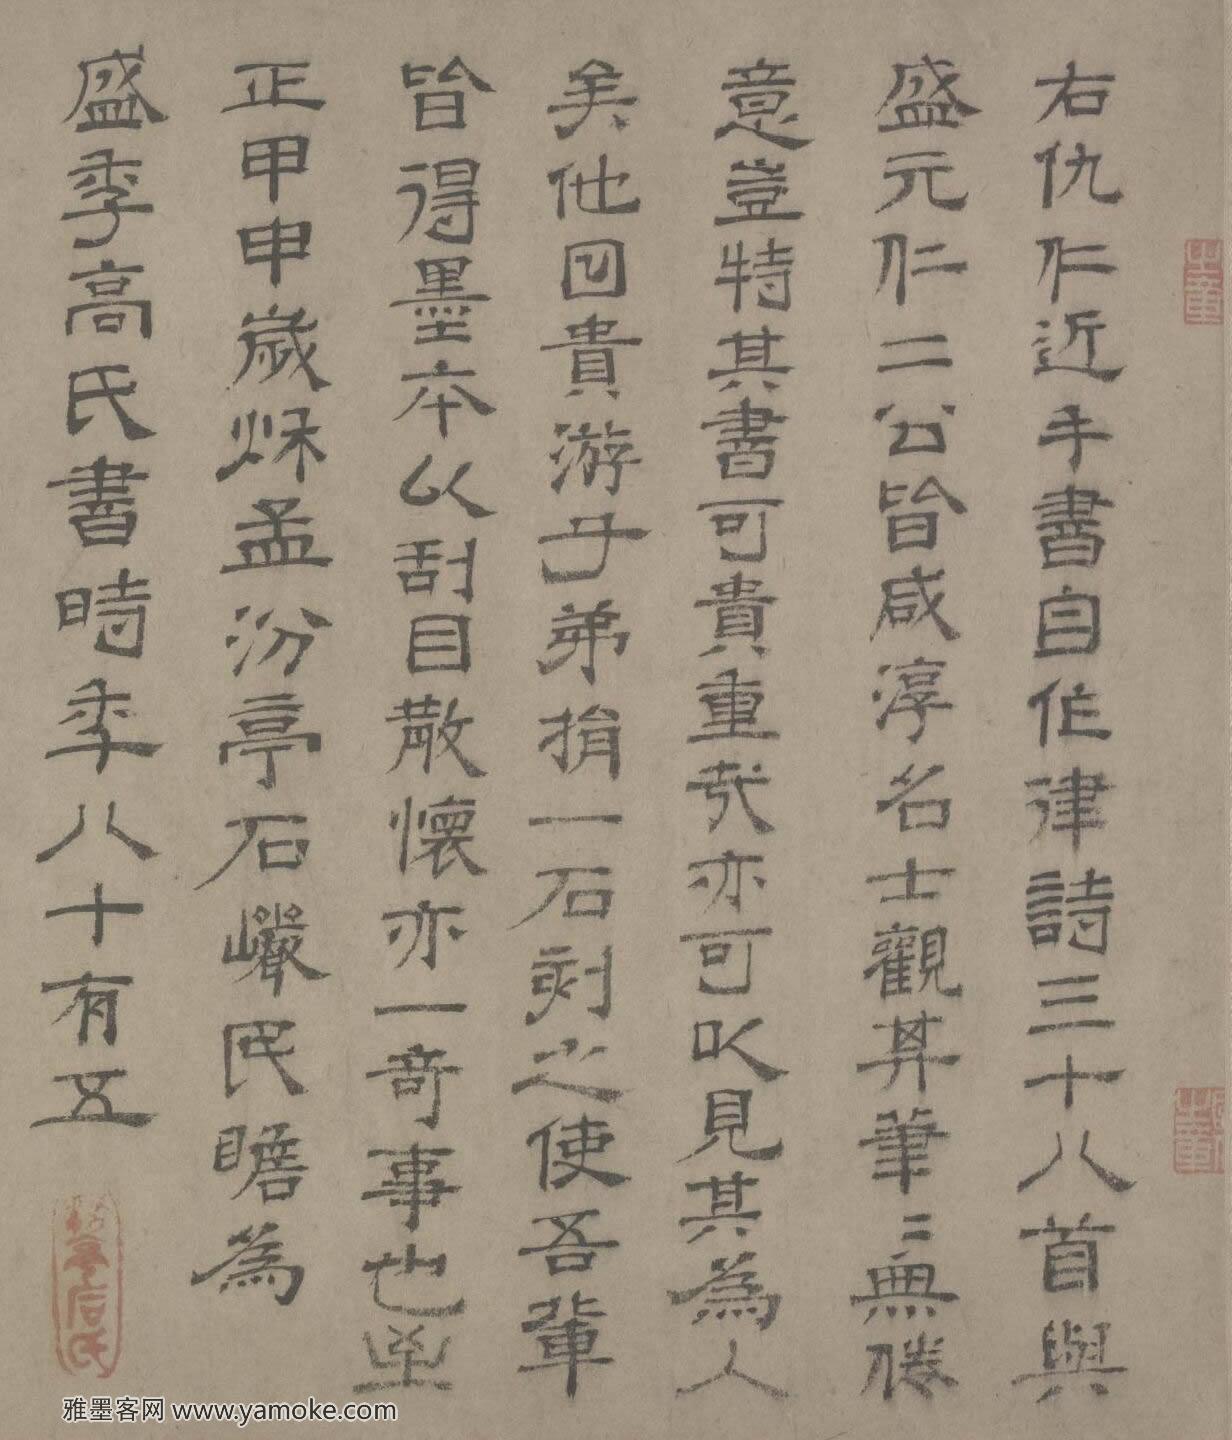 右仇仁近手書自作律詩三十八首與
盛元仁二公皆咸淳名士觀其筆〻無倦
意豈特其書可貴重哉亦可以見其為人
矣他回貴游子弟捐一石刻之使吾輩
皆得墨本以刮目散懷亦一奇事也至
正甲申歲秌孟汾亭石巖民瞻為
盛季高氏書時季八十有五
汾亭石氏
雅墨客网 www.yamoke.com